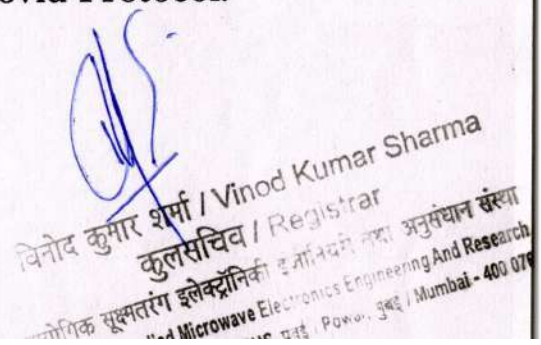 Protocol.
विनोद कुमार शर्मा / Vinod Kumar Sharma
कुलसचिव / Registrar
सूक्ष्मतरंग इलेक्ट्रॉनिकी इंजीनियरी तथा अनुसंधान संस्था
Microwave Electronics Engineering And Research
मुंबई / Mumbai - 400 076